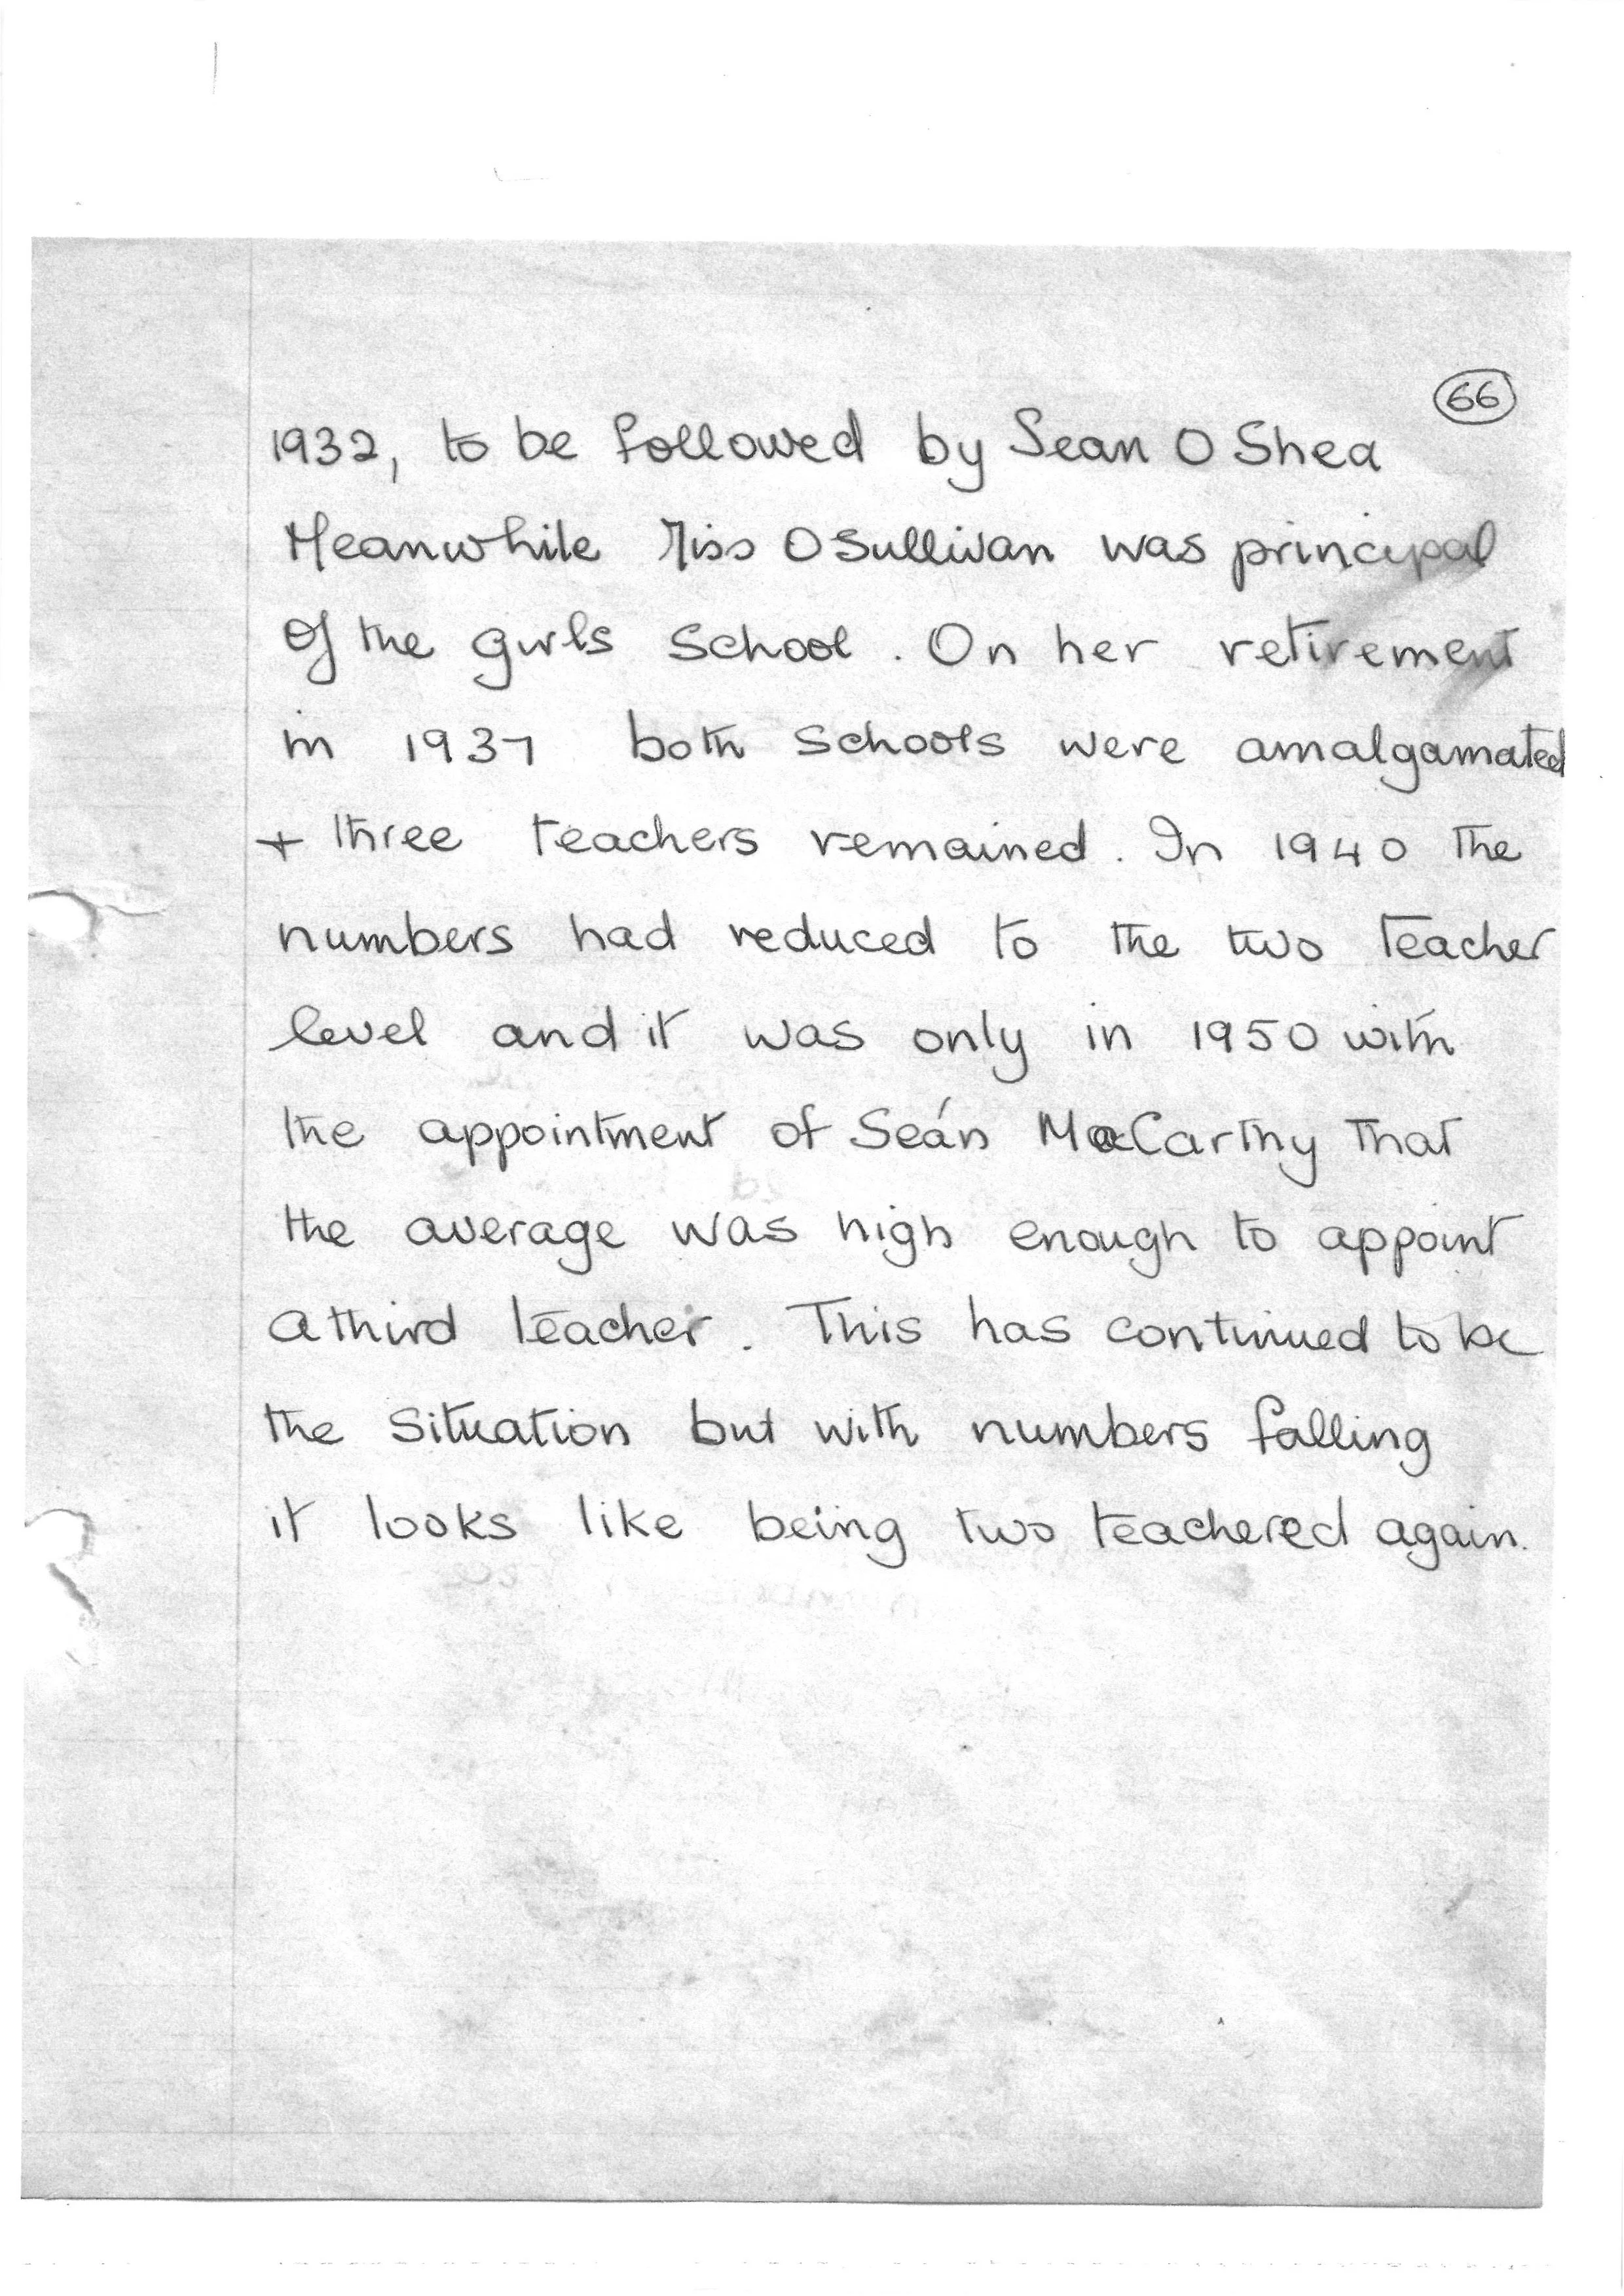 66
1932, to be followed by Sean O Shea
Meanwhile Miss OSullivan was principal
Of the girls School. On her retirement
in 1937 both schools were amalgamated
+ three teachers remained. In 1940 the
numbers had reduced to the two teacher
level and it was only in 1950 with
the appointment of Seán MacCarthy that
the average was high enough to appoint
a third teacher. This has continued to be
the situation but with numbers falling
it looks like being two teachered again.